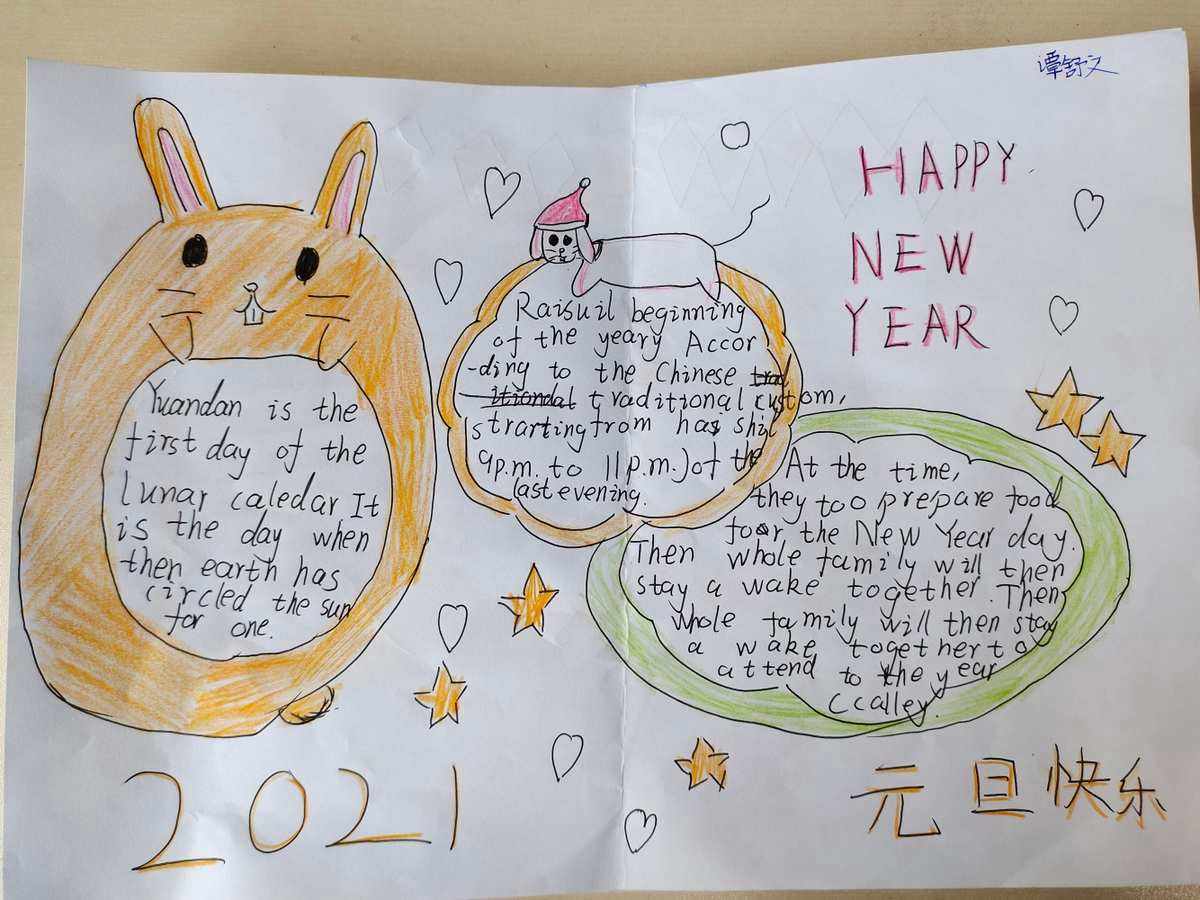 谭舒文
HAPPY
NEW
YEAR
Yuandan is the
first day of the
lunar caledar It
is the day when
then earth has
circled the sun
for one.
Raisuil beginning
of the yeary Accor
-ding to the Chinese
traditional custom,
strarting from hash shil
9p.m. to 11p.m.)of the
last evening.
At the time,
they too prepare food
foor the New Year day.
Then whole family will then
stay a wake together. Then
whole family will then stay
a wake together to
attend to the year
Ccalley.
2021
元旦快乐